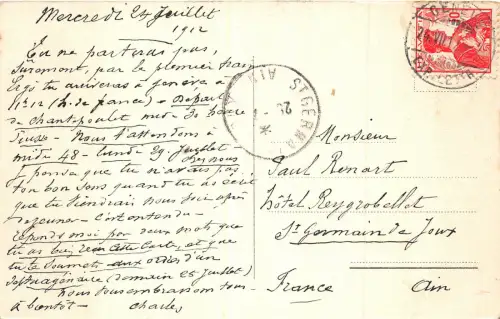 Mercredi 24 Juillet
1912
Tu ne partiras pas,
Suromont, par le premier train
Ergo tu arriveras à genève à
11h12 (h. de france) = Départ
de Chantepoulet midi 30 heure
Suisse - Nous t'attendons à
midi 48 - lundi 29 Juillet
chez nous
Je pense que tu n'avais pas
ton bon sens quand tu as écrit
que tu viendrais nous voir après
déjeuner - C'est entendu -
réponds moi par deux mots que
tu as bien reçu cette carte, et que
tu te soumets aux ordres d'un
septuagénaire (demain 25 Juillet)
Nous t'embrassons tous -
à bientôt - Charles
Monsieur
Paul Renart
hôtel Reygrobellet
St Germain de Joux
Ain
France
ST GERMA
AIN
25